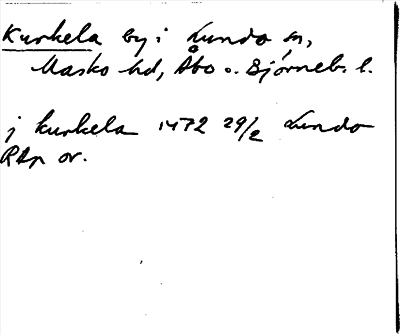 Kurkela by i Lundo sn,
Masko hd, Åbo o. Björneb. l.
j kurkela 1472 29/2 Lundo
RAp or.